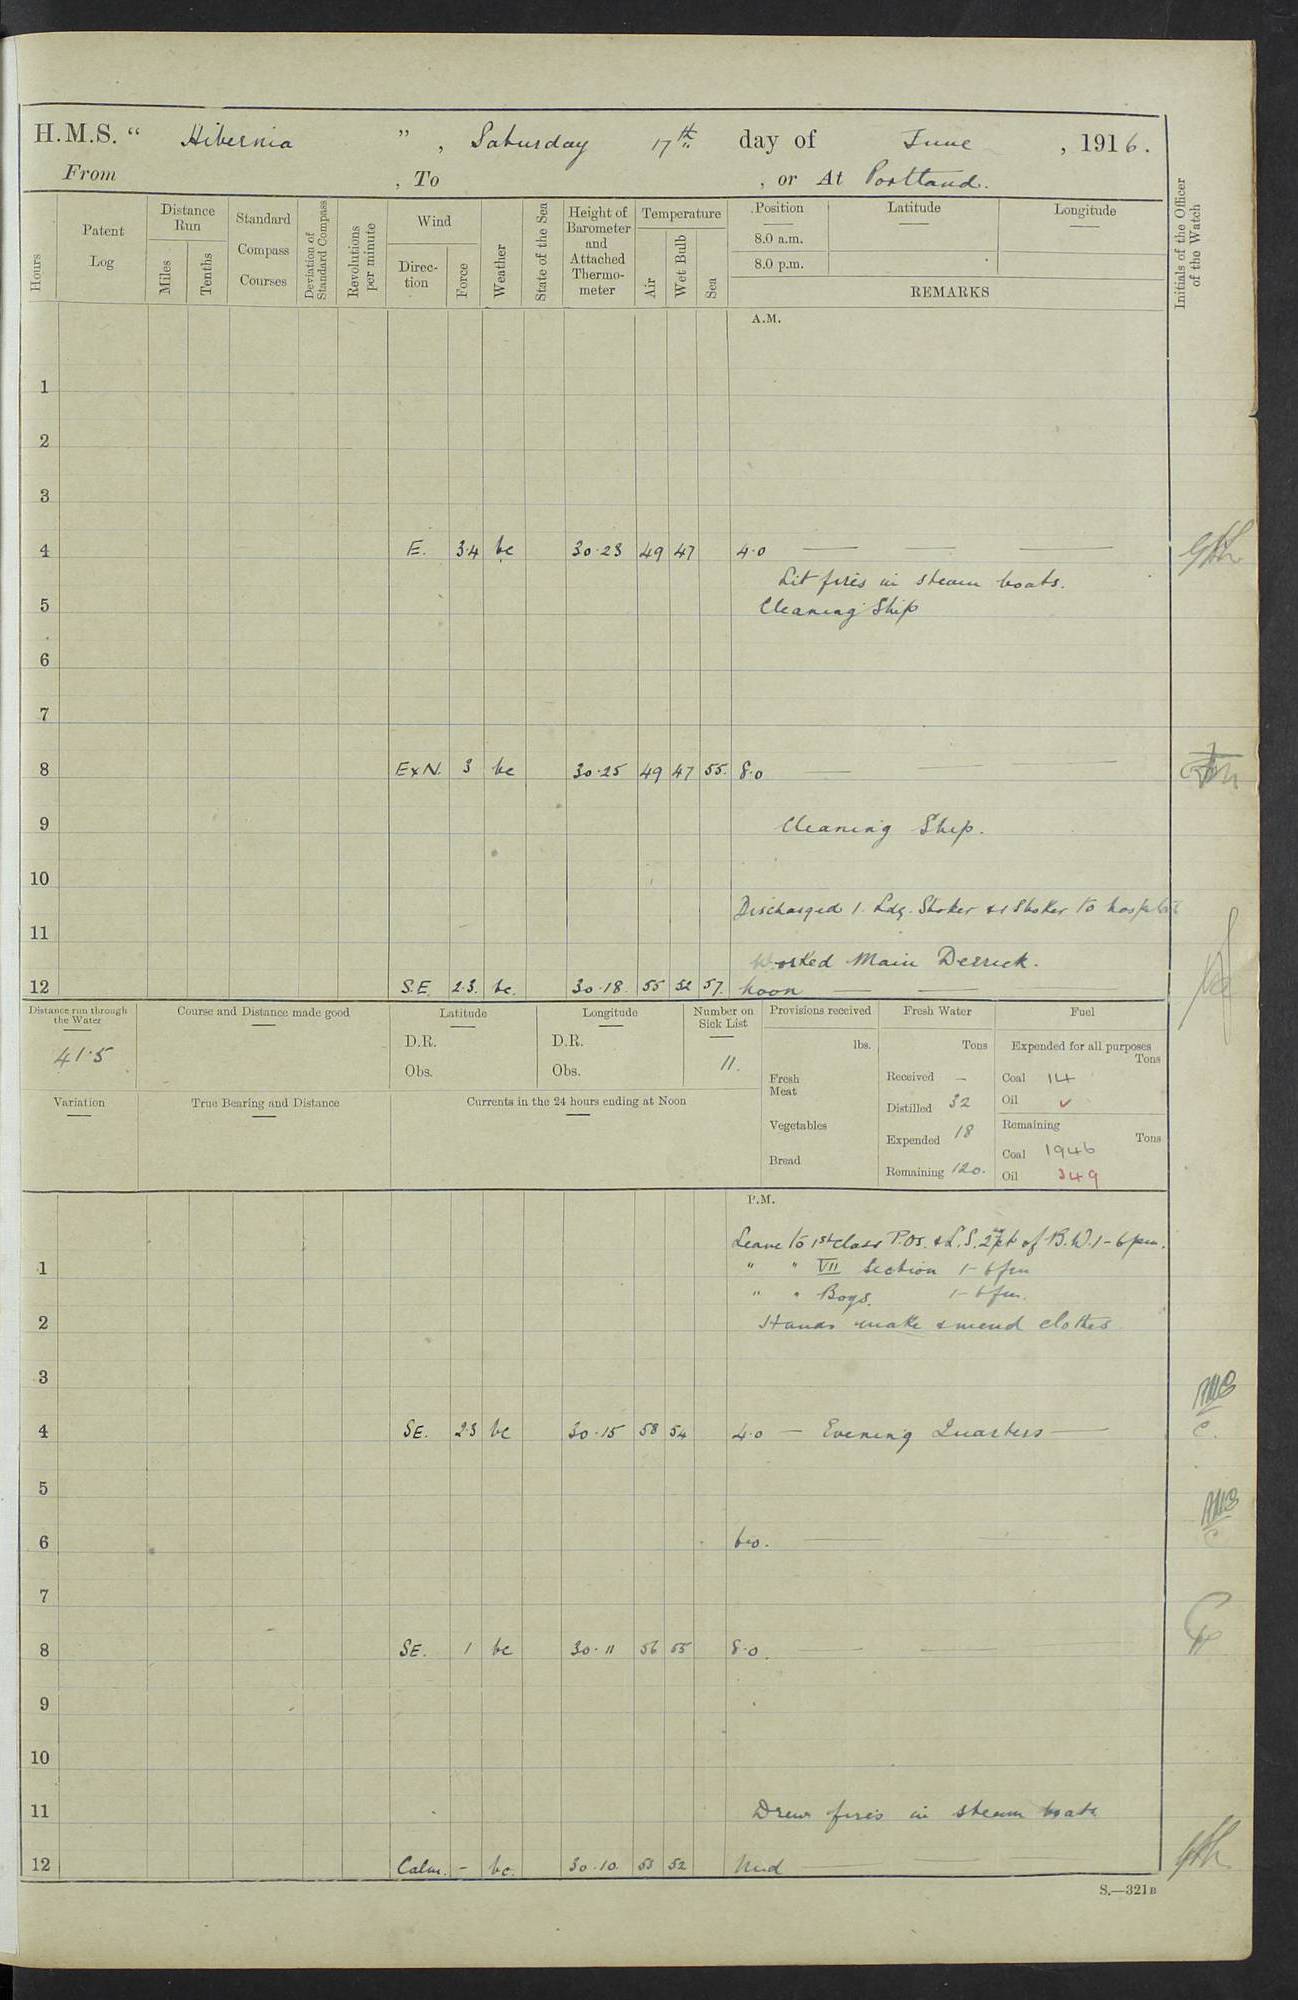 H.M.S. “ Hibernia ” , Saturday 17th day of June , 1916.
From , To , or At Portland.
Hours
Patent Log
Distance Run
Miles
Tenths
Standard Compass Courses
Deviation of Standard Compass
Revolutions per minute
Wind
Direc-tion
Force
Weather
State of the Sea
Height of Barometer and Attached Thermo-meter
Temperature
Air
Wet Bulb
Sea
Position
8.0 a.m.
8.0 p.m.
Latitude
Longitude
REMARKS
Initials of the Officer of the Watch
A.M.
1
2
3
4 E. 3.4 bc 30.23 49 47 4.0
Lit fires in steam boats.
5 Cleaning Ship
6
7
8 ExN. 3 bc 30.25 49 47 55. 8.0
9 Cleaning Ship.
10
Discharged 1. Ldg. Stoker & 1 Stoker to hospital
11
Worked Main Derrick.
12 S.E. 2.3. bc. 30.18. 55 52 57. Noon
Distance run through the Water
41.5
Course and Distance made good
Latitude
D.R.
Obs.
Longitude
D.R.
Obs.
Number on Sick List
11.
Provisions received
lbs.
Fresh Meat
Vegetables
Bread
Fresh Water
Tons
Received –
Distilled 32
Expended 18
Remaining 120.
Fuel
Expended for all purposes
Tons
Coal 14
Oil ✓
Remaining
Tons
Coal 1946
Oil 349
Variation
True Bearing and Distance
Currents in the 24 hours ending at Noon
P.M.
Leave to 1st class P.Os. & L.S. 2nd pt of B.W. 1-6pm.
1 " " VII Section 1-6pm
" " Boys. 1-6pm.
2 Hands make & mend clothes
3
4 SE. 2.3 bc 30.15 58 54 4.0 — Evening Quarters —
5
6 6.0.
7
8 SE. 1 bc 30.11 56 55 8.0.
9
10
11 Drew fires in steam boats
12 Calm. - bc. 30.10. 53 52 Mid
S.—321B